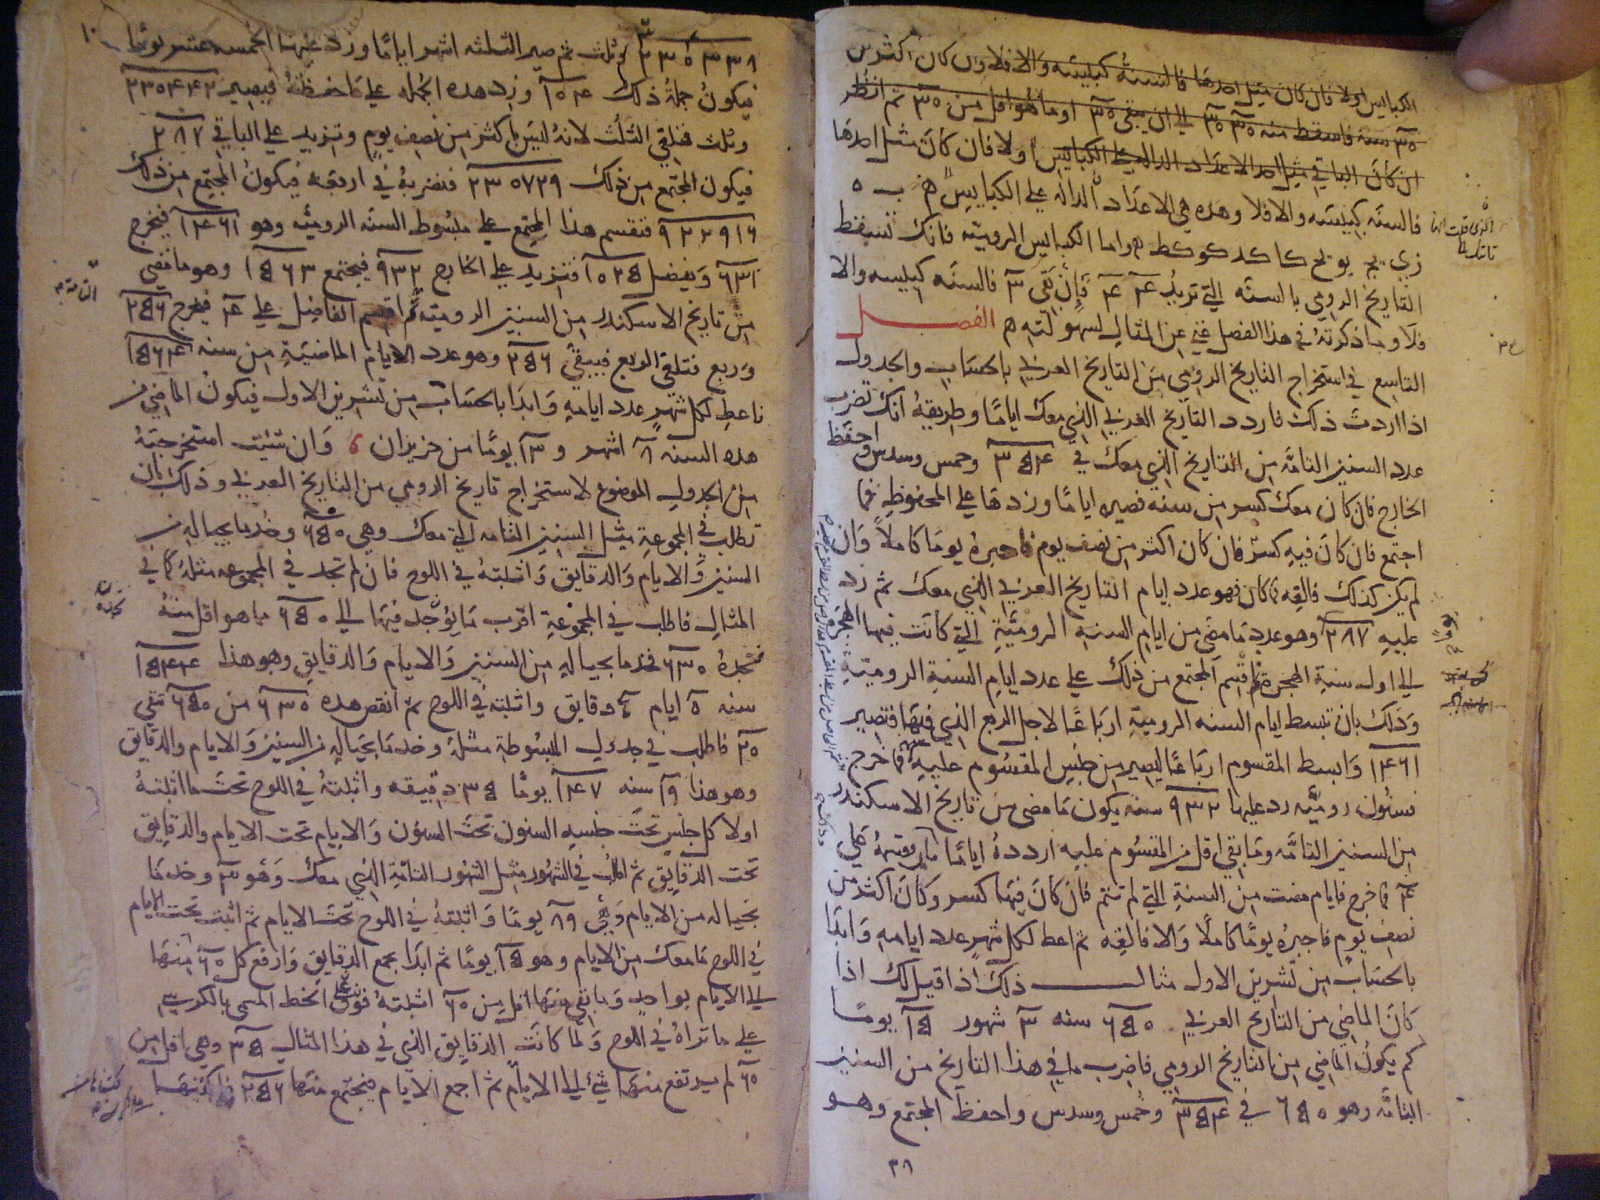 الكبايس اولا فان كان مثل احدها فالسنة كبيسه والا فلا وان كان اكثر من
٣٥ سنه فاسقط منه ٣٥ ٣٥ الى ان يبقى ٣٥ او ما هو اقل من ٣٥ ثم انظر
ان كان الباقي مثل احد الاعداد الداله على الكبايس اولا فان كان مثل احدها
فالسنه كبيسه والا فلا وهذه هي الاعداد الداله على الكبايس هـ ب ٥
زي يج يو يح كا كد كو كط واما الكبايس الروميه فانك تسقط
التاريخ الرومي بالسنه التي تريد ٤ ٤ فان بقي ٣ فالسنه كبيسه والا
فلا وما ذكرته في هذا الفصل غني عن المثال لسهولته الفصل
التاسع في استخراج التاريخ الرومي من التاريخ العربي بالحساب والجدول
اذا اردت ذلك فاردد التاريخ العربي الذي معك اياما وطريقه انك تضرب
عدد السنين التامه من التاريخ الذي معك في ٣٥٤ وخمس وسدس واحفظ
الخارج فان كان معك كسر من سنه فصيره اياما وزدها على المحفوظ فما
اجتمع فان كان فيه كسر فان كان اكثر من نصف يوم فاجبره يوما كاملا وان
لم يكن كذلك فالقه فما كان فهو عدد ايام التاريخ العربي الذي معك ثم زد
عليه ٢٨٧ وهو عدد ما مضى من ايام السنه الروميه التي كانت فيها الهجره
الى اول سنة الهجرة ثم اقسم المجتمع من ذلك على عدد ايام السنة الرومية
وذلك بان تبسط ايام السنه الروميه ارباعا لاجل الربع الذي فيها فتصير
١٤٦١ وابسط المقسوم ارباعا ليصير من جنس المقسوم عليه فما خرج
فسنون روميه زد عليها ٩٣٢ سنه يكون ما مضى من تاريخ الاسكندر
من السنين التامه وما بقي اقل من المقسوم عليه اردده اياما بان تقسمه على
٤ فما خرج فايام مضت من السنة التي لم تتم فان كان فيها كسر وكان اكثر من
نصف يوم فاجبره يوما كاملا والا فالقه ثم اعط لكل شهر عدد ايامه وابدا
بالحساب من تشرين الاول مثال ذلك اذا قيل لك اذا
كان الماضي من التاريخ العربي ٦٥٥ سنه ٣ شهور ١٥ يوما
كم يكون الماضي من التاريخ الرومي فاضرب ما في هذا التاريخ من السنين
التامه وهو ٦٥٥ في ٣٥٤ وخمس وسدس واحفظ المجتمع وهو
٣٨
١٠
وثلث ثم صير الثلثه اشهر اياما وزد عليها الخمسه عشر يوما
فيكون جملة ذلك ١٠٤ وزد هذه الجمله على ما حفظته فيصير ٢٣٥٤٤٢
وثلث فنلقي الثلث لانه ليس باكثر من نصف يوم ونزيد على الباقي ٢٨٧
فيكون المجتمع من ذلك ٢٣٥٧٢٩ فنضربه في اربعه فيكون المجتمع من ذلك
٩٤٢٩١٦ فنقسم هذا المجتمع على مبسوط السنه الروميه وهو ١٤٦١ فيخرج
٦٣١ ويفضل فنزيد على الخارج ٩٣٢ فيجتمع ١٥٦٣ وهو ما مضى
من تاريخ الاسكندر من السنين الروميه ثم اقسم الفاضل على ٤ فيخرج ٢٥٦
وربع فتلقي الربع فيبقى ٢٥٦ وهو عدد الايام الماضية من سنه ١٥٦٤
فاعط لكل شهر عدد ايامه وابدا بالحساب من تشرين الاول فيكون الماضي من
هذه السنه ٨ اشهر و ١٣ يوما من حزيران وان شئت استخرجته
من الجدول الموضوع لاستخراج تاريخ الرومي من التاريخ العربي وذلك بان
تطلب في المجموعة مثل السنين التامه التي معك وهي ٦٥٥ وخذ ما بحياله من
السنين والايام والدقايق واثبته في اللوح فان لم تجد في المجموعه مثله كما في
المثال فاطلب في المجموعة اقرب ما يوجد فيها الى ٦٥٥ مما هو اقل منه
فتجده ٦٣٠ فخذ ما بحياله من السنين والايام والدقايق وهو هذا ١٥٤٤
سنه ٥ ايام دقايق واثبته في اللوح ثم انقص هذه ٦٣٠ من ٦٥٥ تبقى
٢٥ فاطلب في جدول المبسوطة مثله وخذ ما بحياله من السنين والايام والدقايق
وهو هذا سنه ١٤٧ يوما دقيقه واثبته في اللوح تحت ما اثبته
اولا كل جنس تحت جنسه السنون تحت السنون والايام تحت الايام والدقايق
تحت الدقايق ثم اطلب في الشهور مثل الشهور التامة الذي معك وهو ٣ وخذ ما
بحياله من الايام وهي ٨٩ يوما واثبته في اللوح تحت الايام ثم اثبت تحت الايام
في اللوح ما معك من الايام وهو ١٥ يوما ثم ابدا بجمع الدقايق وارفع كل ٦٠ منها
الى الايام بواحد وما بقي منها اقل من ٦٠ اثبته فوق الخط المسمى بالكرسي
على ما تراه في اللوح ولما كانت الدقايق الذي في هذا المثال وهي اقل من
٦٠ لم يرتفع منها شي الى الايام ثم اجمع الايام فيجتمع منها ٢٥٦ فاكتبها